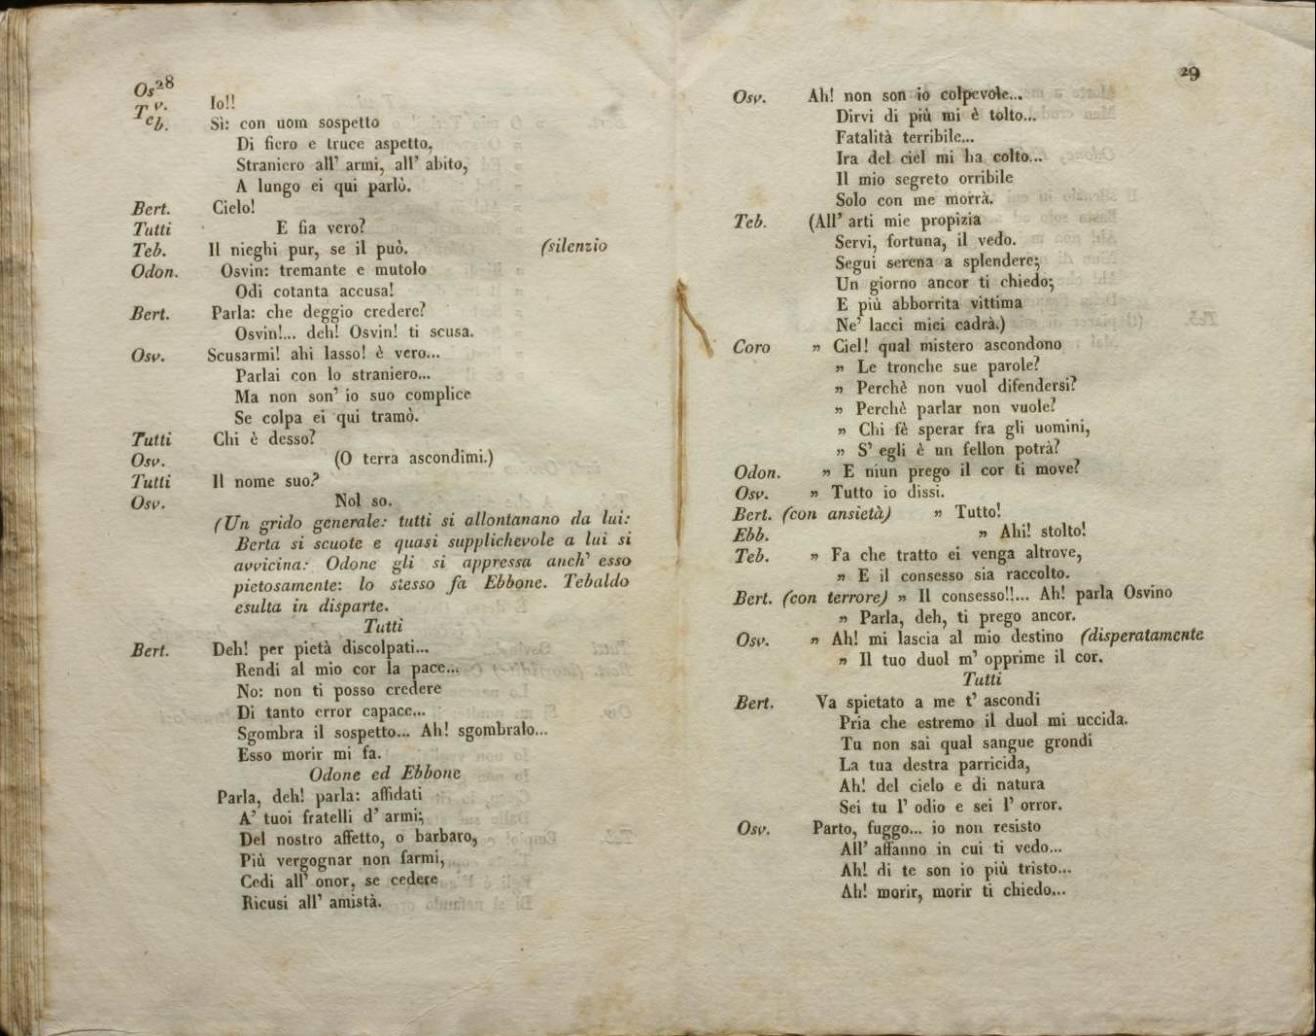 28
Osv. Io!!
Teb. Sì: con uom sospetto
Di fiero e truce aspetto,
Straniero all' armi, all' abito,
A lungo ei qui parlò.
Bert. Cielo!
Tutti E fia vero?
Teb. Il nieghi pur, se il può. (silenzio
Odon. Osvin: tremante e mutolo
Odi cotanta accusa!
Bert. Parla: che deggio credere?
Osvin!... deh! Osvin! ti scusa.
Osv. Scusarmi! ahi lasso! è vero...
Parlai con lo straniero...
Ma non son' io suo complice
Se colpa ei qui tramò.
Tutti Chi è desso?
Osv. (O terra ascondimi.)
Tutti Il nome suo?
Osv. Nol so.
(Un grido generale: tutti si allontanano da lui:
Berta si scuote e quasi supplichevole a lui si
avvicina: Odone gli si appressa anch' esso
pietosamente: lo stesso fa Ebbone. Tebaldo
esulta in disparte.
Tutti
Bert. Deh! per pietà discolpati...
Rendi al mio cor la pace...
No: non ti posso credere
Di tanto error capace...
Sgombra il sospetto... Ah! sgombralo...
Esso morir mi fa.
Odone ed Ebbone
Parla, deh! parla: affidati
A' tuoi fratelli d' armi;
Del nostro affetto, o barbaro,
Più vergognar non farmi,
Cedi all' onor, se cedere
Ricusi all' amistà.
29
Osv. Ah! non son io colpevole...
Dirvi di più mi è tolto...
Fatalità terribile...
Ira del ciel mi ha colto...
Il mio segreto orribile
Solo con me morrà.
Teb. (All' arti mie propizia
Servi, fortuna, il vedo.
Segui serena a splendere;
Un giorno ancor ti chiedo;
E più abborrita vittima
Ne' lacci miei cadrà.)
Coro " Ciel! qual mistero ascondono
" Le tronche sue parole?
" Perchè non vuol difendersi?
" Perchè parlar non vuole?
" Chi fè sperar fra gli uomini,
" S' egli è un fellon potrà?
Odon. " E niun prego il cor ti move?
Osv. " Tutto io dissi.
Bert. (con ansietà) " Tutto!
Ebb. " Ahi! stolto!
Teb. " Fa che tratto ei venga altrove,
" E il consesso sia raccolto.
Bert. (con terrore) " Il consesso!!... Ah! parla Osvino
" Parla, deh, ti prego ancor.
Osv. " Ah! mi lascia al mio destino (disperatamente
" Il tuo duol m' opprime il cor.
Tutti
Bert. Va spietato a me t' ascondi
Pria che estremo il duol mi uccida.
Tu non sai qual sangue grondi
La tua destra parricida,
Ah! del cielo e di natura
Sei tu l' odio e sei l' orror.
Osv. Parto, fuggo... io non resisto
All' affanno in cui ti vedo...
Ah! di te son io più tristo...
Ah! morir, morir ti chiedo...